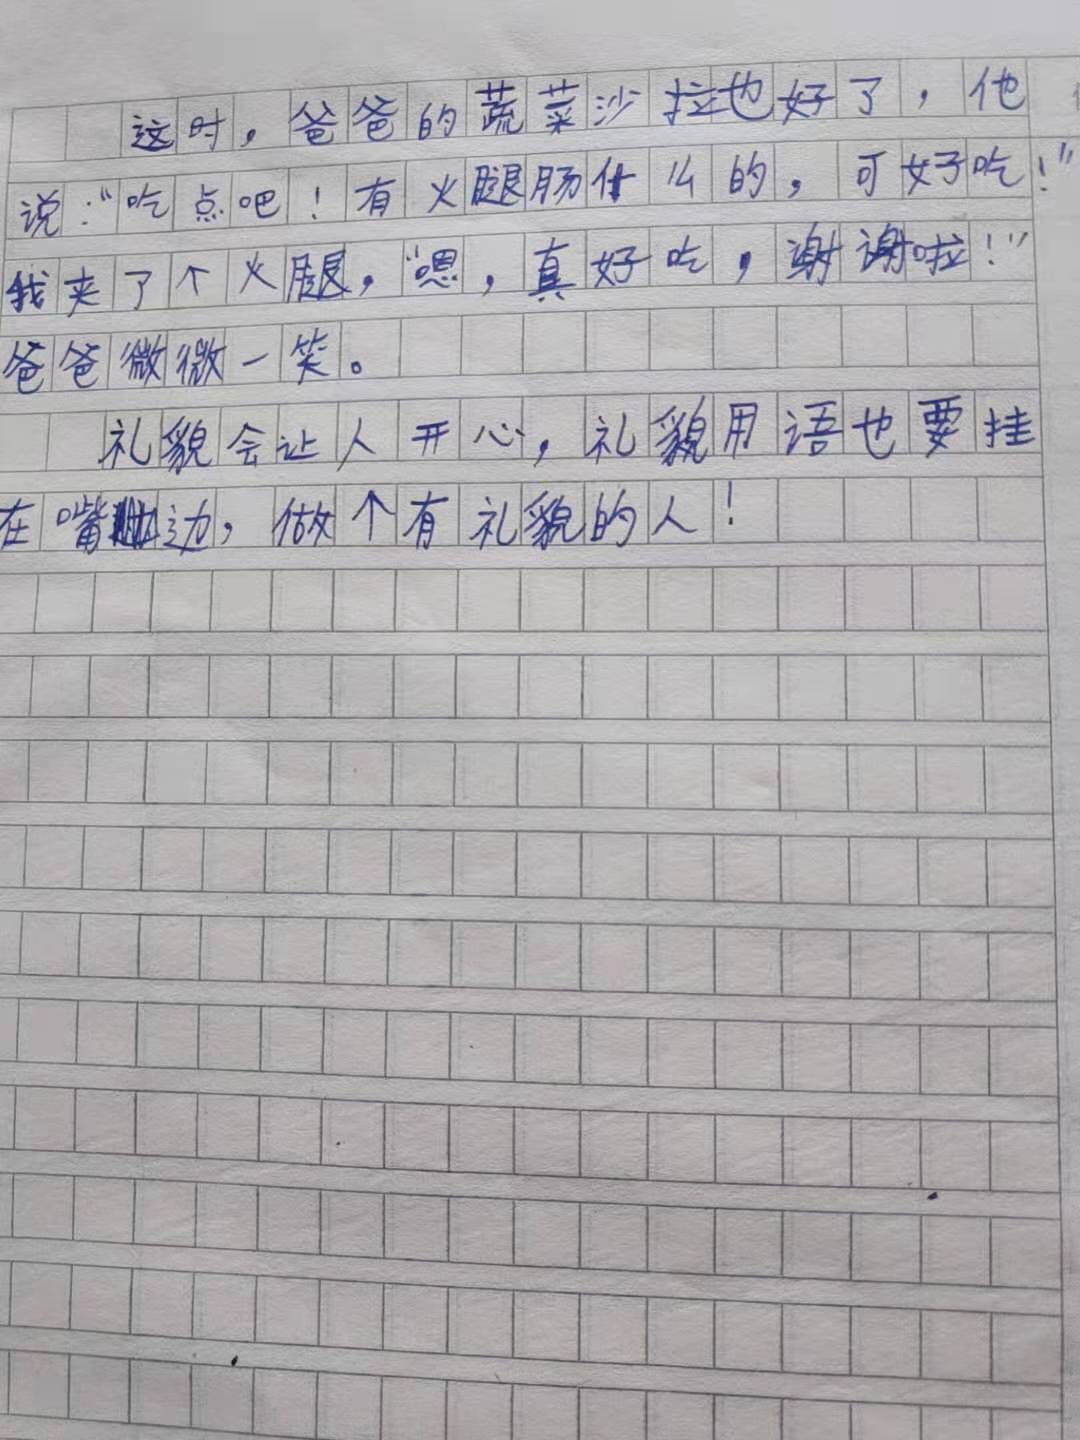 这时，爸爸的蔬菜沙拉也好了，他
说：“吃点吧！有火腿肠什么的，可好吃！”
我夹了个火腿，“嗯，真好吃，谢谢啦！”
爸爸微微一笑。
礼貌会让人开心，礼貌用语也要挂
在嘴边，做个有礼貌的人！